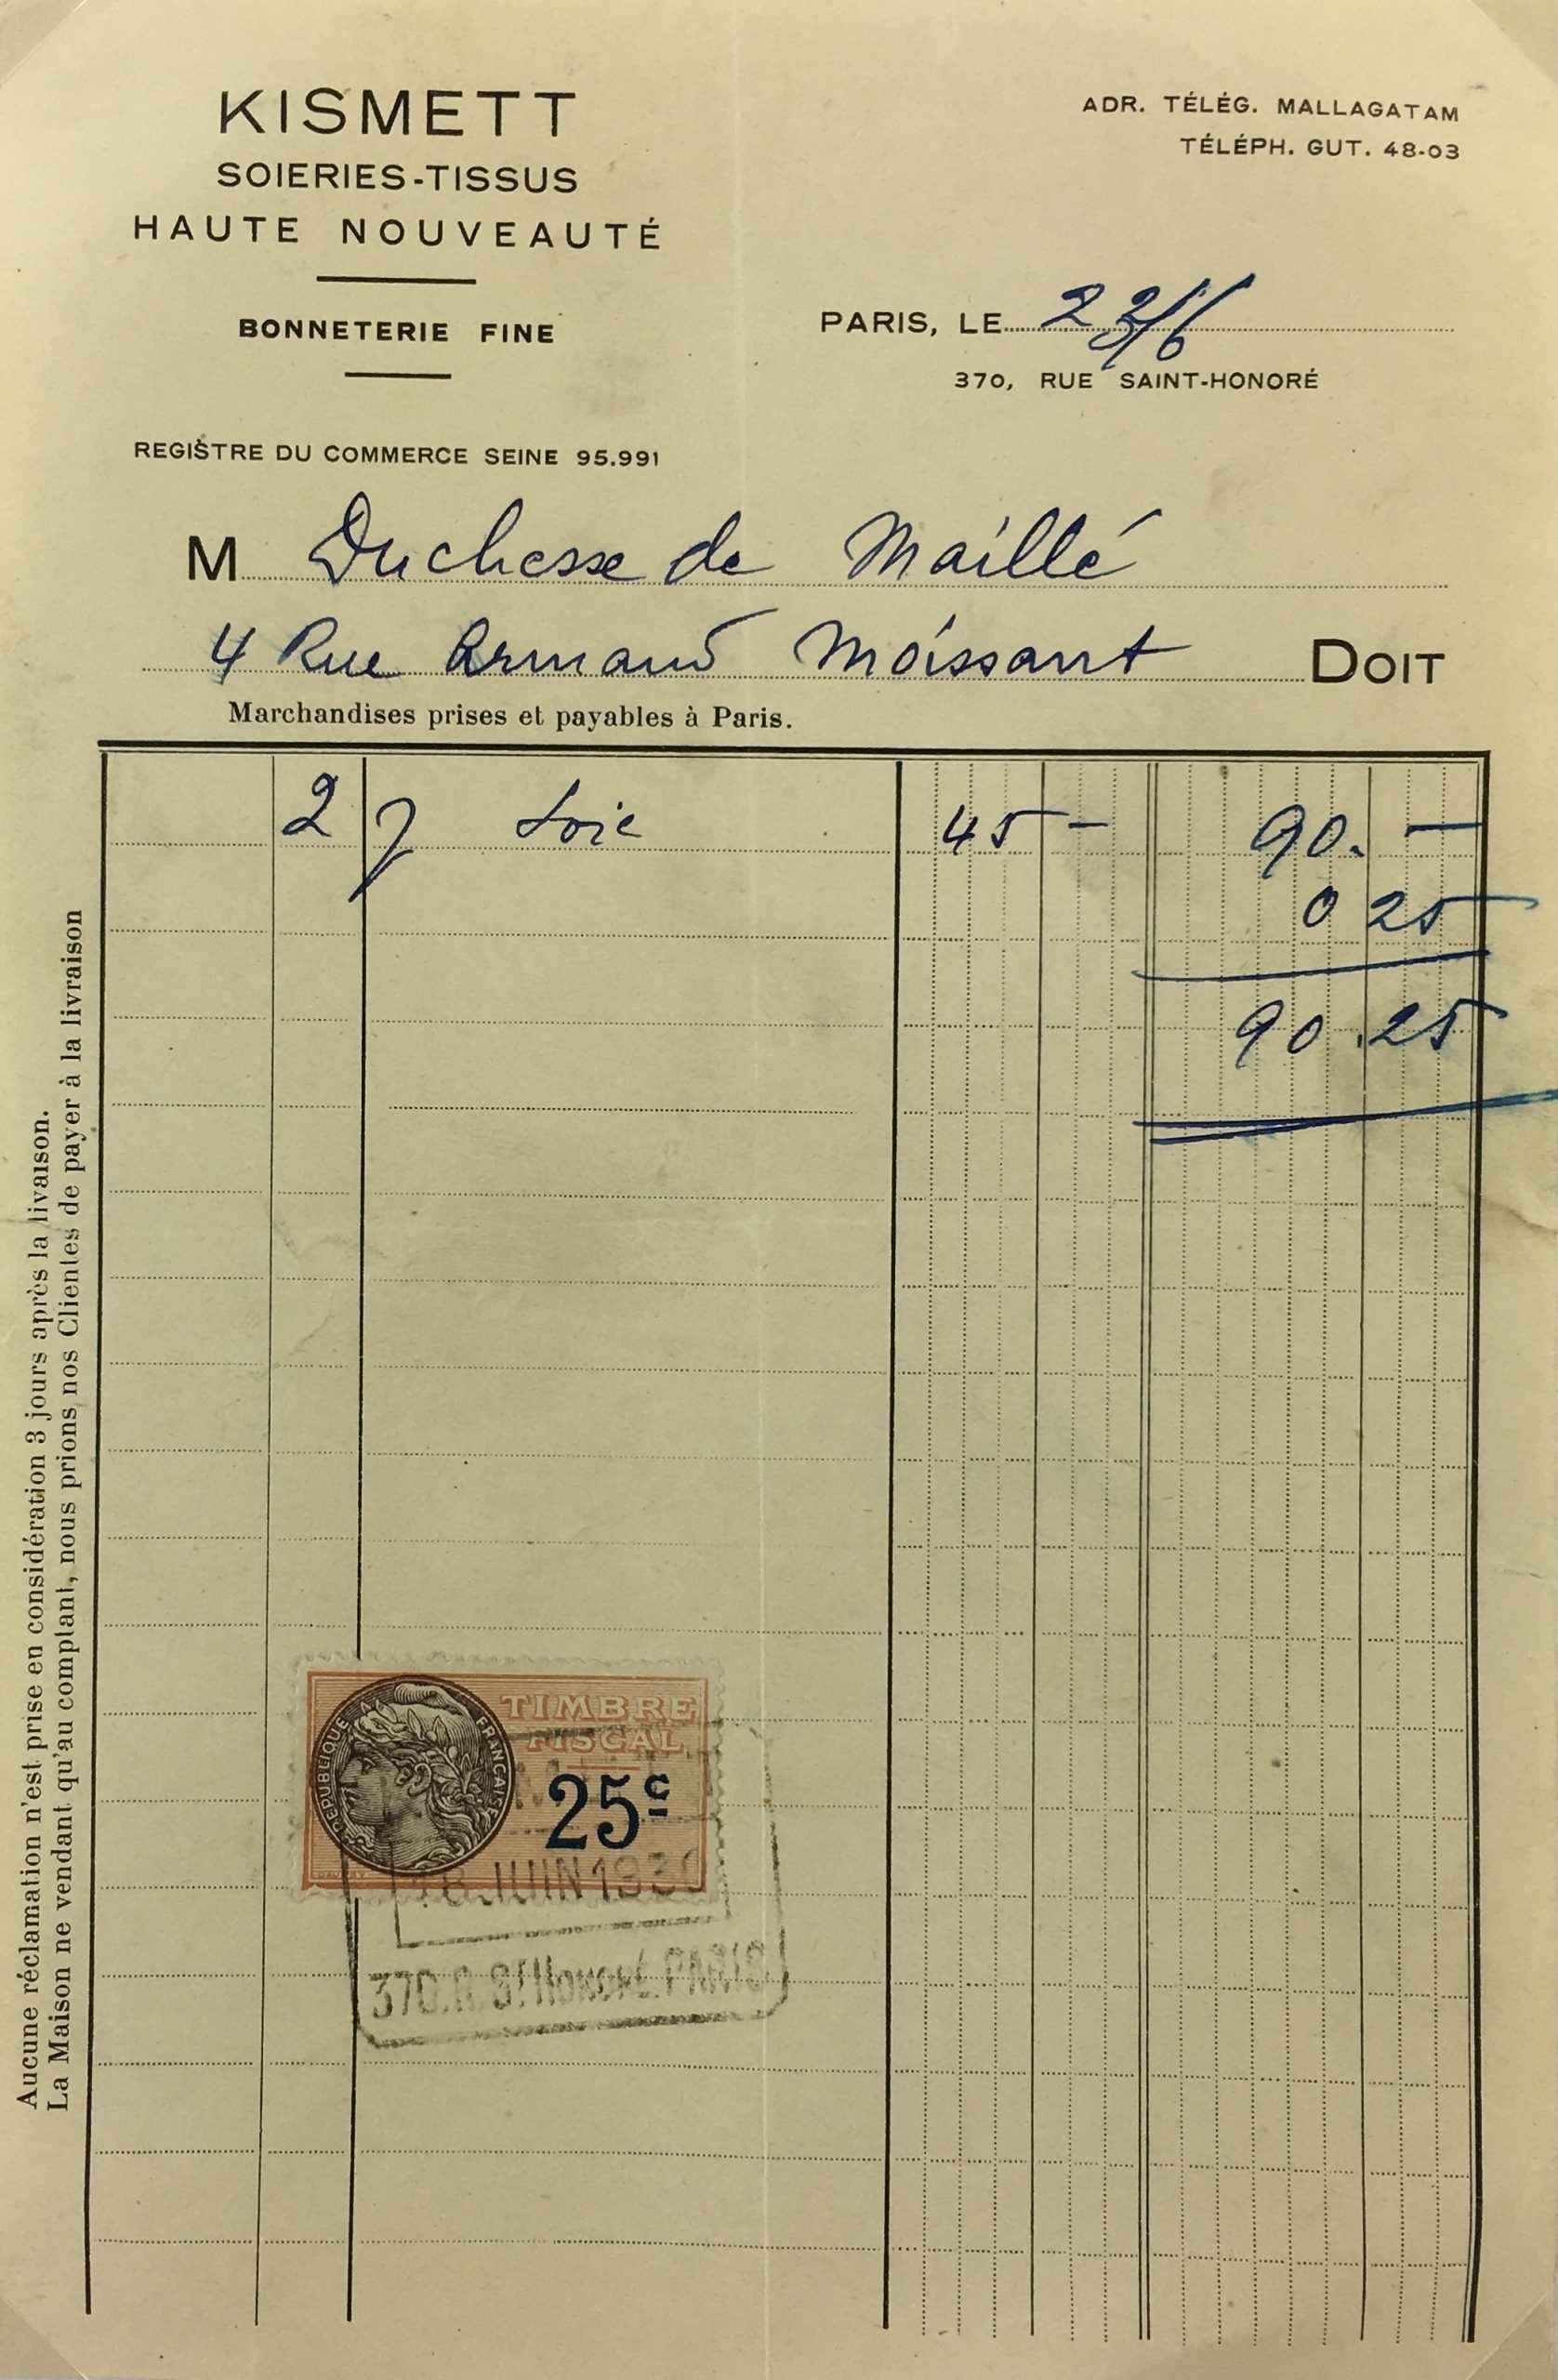 KISMETT
SOIERIES-TISSUS
HAUTE NOUVEAUTÉ
BONNETERIE FINE
REGISTRE DU COMMERCE SEINE 95.991
ADR. TÉLÉG. MALLAGATAM
TÉLÉPH. GUT. 48-03
PARIS, LE 22/6
370, RUE SAINT-HONORÉ
M Duchesse de Maillé
4 Rue Armand Moissant DOIT
Marchandises prises et payables à Paris.
2 Soie 45 - 90. -
0 25
90.25
Aucune réclamation n'est prise en considération 3 jours après la livaison.
La Maison ne vendant qu'au comptant, nous prions nos Clientes de payer à la livraison
RÉPUBLIQUE FRANÇAISE
TIMBRE
FISCAL
25c
JUIN 193
370.R.St Honoré.PARIS